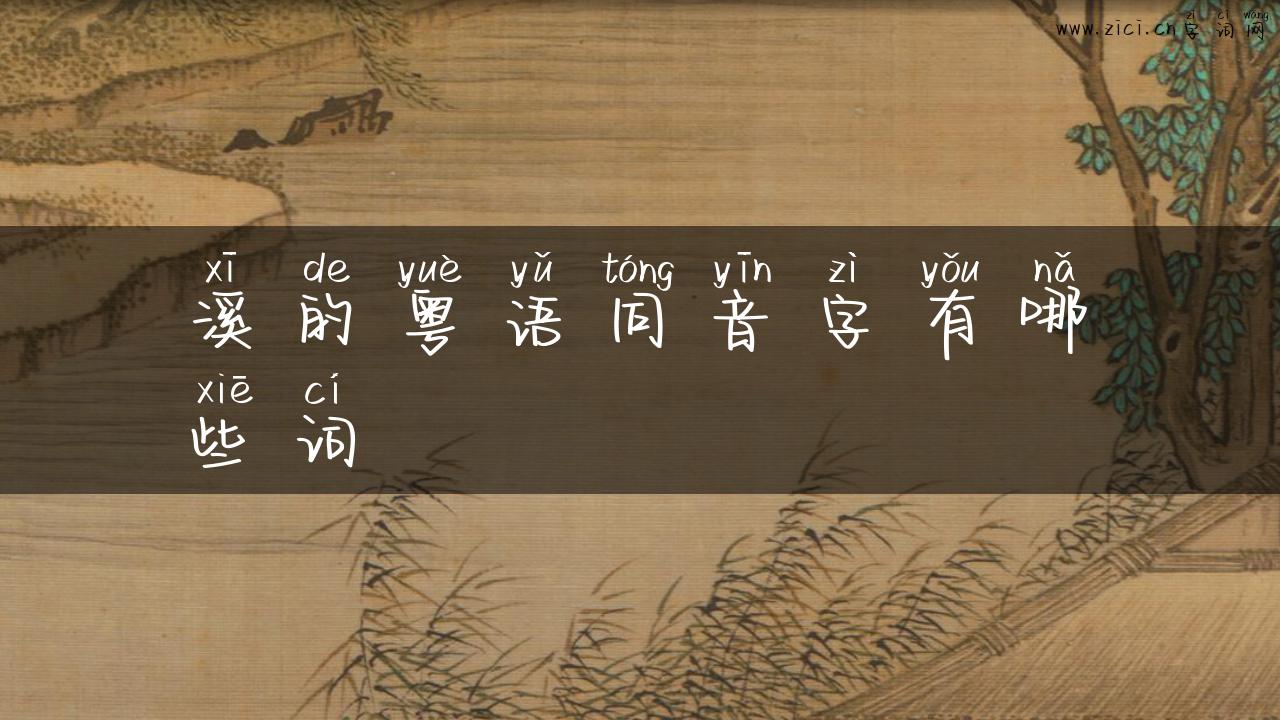 zì cí wǎng
www.zici.cn字词网
xī de yuè yǔ tóng yīn zì yǒu nǎ
溪的粤语同音字有哪
xiē cí
些词